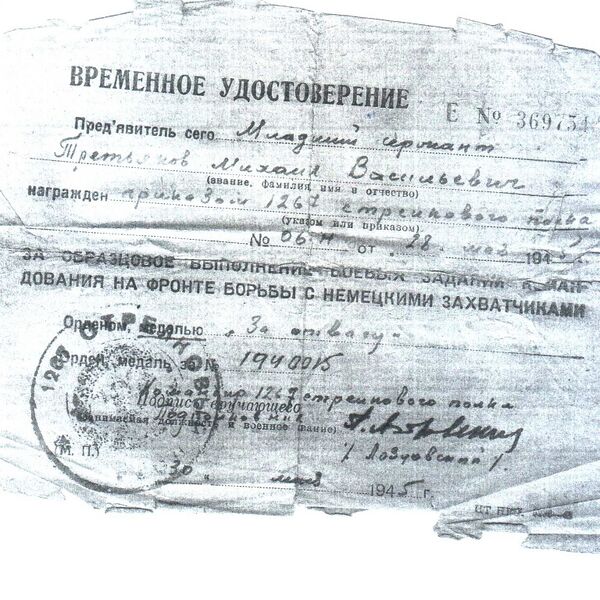 ВРЕМЕННОЕ УДОСТОВЕРЕНИЕ
Е № 369754
Пред'явитель сего Младший сержант
Третьяков Михаил Васильевич
(звание, фамилия имя и отчество)
награжден приказом 1267 стрелкового полка
(указом или приказом)
№ 06/н от 28 мая 194
ЗА ОБРАЗЦОВОЕ ВЫПОЛНЕНИЕ БОЕВЫХ ЗАДАНИЙ КОМАН-
ДОВАНИЯ НА ФРОНТЕ БОРЬБЫ С НЕМЕЦКИМИ ЗАХВАТЧИКАМИ
Орденом, медалью „За отвагу"
Орден, медаль за № 1940015
Командир 1267 стрелкового полка
Подпись вручающего
Подполковник
(занимаемая должность и военное звание)
/Лозловский/
(М. П.)
30 мая 1945 г.
1267 СТРЕЛКОВЫЙ